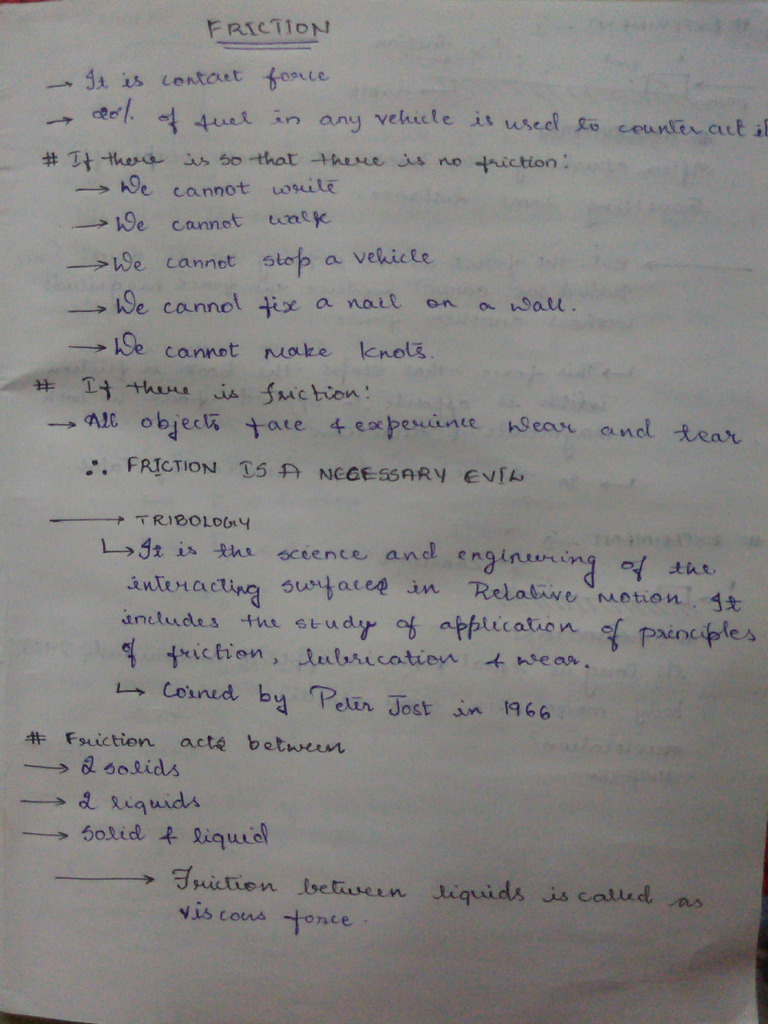 FRICTION
→ It is contact force
→ 20% of fuel in any vehicle is used to counter act it
# If there is so that there is no friction:
→ We cannot write
→ We cannot walk
→ We cannot stop a vehicle
→ We cannot fix a nail on a wall.
→ We cannot make knots.
# If there is friction:
→ All objects face & experience wear and tear
∴ FRICTION IS A NECESSARY EVIL
→ TRIBOLOGY
↳ It is the science and engineering of the
interacting surfaces in Relative motion. It
includes the study of application of principles
of friction, lubrication & wear.
↳ Coined by Peter Jost in 1966
# Friction acts between
→ 2 solids
→ 2 liquids
→ solid & liquid
→ Friction between liquids is called as
viscous force.